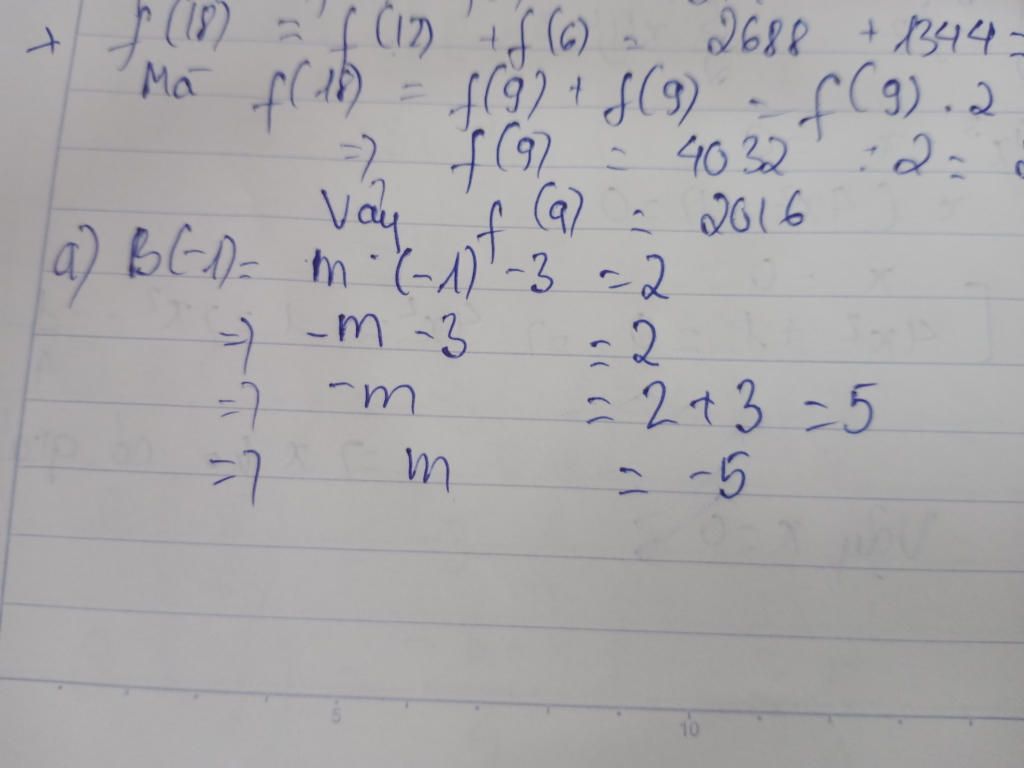 + f(18) = f(12) + f(6) = 2688 + 1344 =
Mà f(18) = f(9) + f(9) = f(9) . 2
=> f(9) = 4032 : 2 =
Vậy f(9) = 2016
a) B(-1) = m . (-1) - 3 = 2
=> -m - 3 = 2
=> -m = 2 + 3 = 5
=> m = -5
5 10